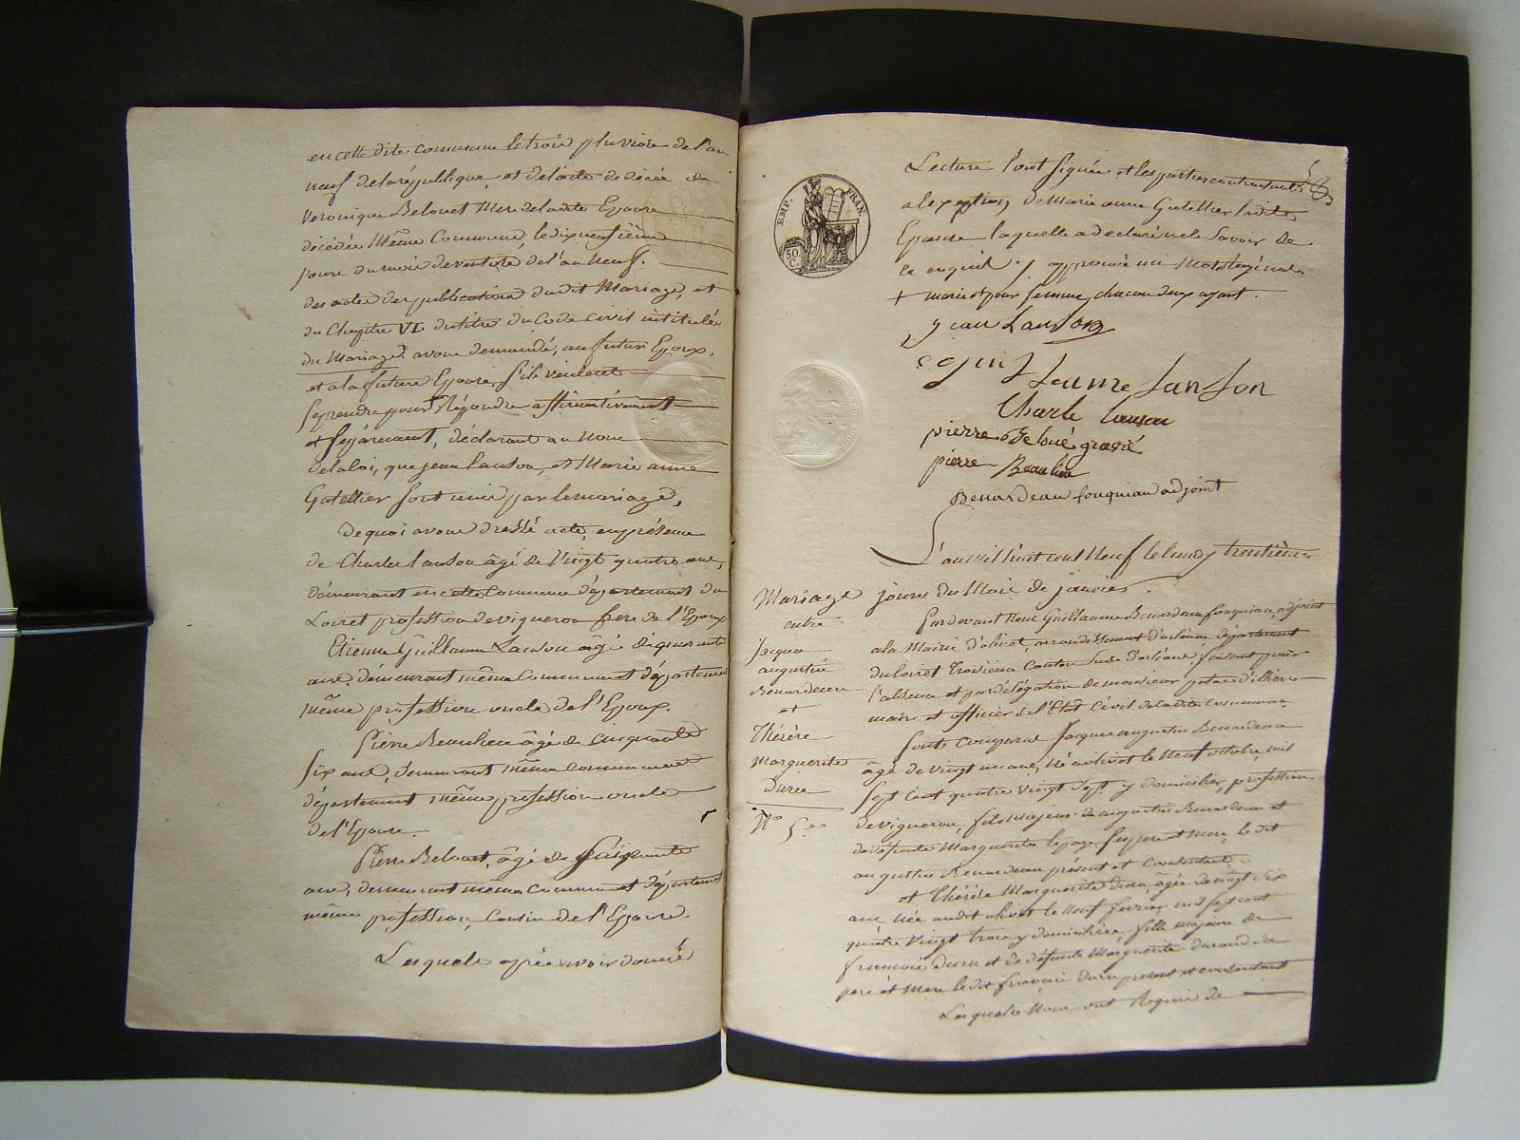 en cette dite commune le trois pluviose de l'an
neuf de la république, et de l'acte de décés de
Veronique Belouet Mere de ladite Epouse
décédée Même Commune, le dixneufième
jours du mois de ventose de l'an neuf.
des actes des publications dudit Mariage, et
du Chapitre VI. du titre du Code civil intitulé
du Mariage, avons demandé, au futur Epoux,
et a la future Epouse, s'ils veulent
se prendre pour
Répondre affirmativement
et separement, déclarant au nom
de la loi, que jean Lanson, et Marie anne
Gatellier sont unis par le mariage,
de quoi avons dressé acte, en présence
de Charles Lanson âgé de Vingt quatre ans,
demeurant en cette Commune département du
Loiret profession de vigneron frere de l'Epoux
Etienne Guillaume Lanson âgé de quarante
ans, demeurant même Commune et département
même profession oncle de l'Epoux.
Pierre Beaulieu âgé de Cinquante
six ans, demeurant même commune et
département même profession oncle
de l'Epouse.
Pierre Belouet, âgé de soixante
ans, demeurant même Commune et département
même profession, Cousin de l'Epouse.
Lesquels après avoir donné
EMP. FRAN.
50 C.
Lecture l'ont signée et les parties contractantes
a l'exception de Marie anne Gatellier ladite
Epouse laquelle a declaré ne le Savoir de
ce enquise
+ mari et pour femme, chacun deux ayant.
jean Lanson
Guillaume Lanson
Charle Lanson
pierre Beloué
pierre Beaulieu
Benardeau fouqueau adjoint
L'an mil huit cent Neuf le lundy trentième
jours du Mois de janvier.
Mariage
entre
Jacques
augustin
Benardeau
et
Thérèse
Marguerite
Duru
N° 5.
Pardevant Nous Guillaume Benardeau fouqueau, adjoint
a la Mairie d'olivet, arrondissement d'orléans département
du loiret Troisième Canton Sud d'orléans, faisant pour
l'absence et par délégation de monsieur
maire et officier de l'Etat Civil de ladite commune
sont comparus Jacques augustin Benardeau
âgé de vingt un ans, Né a olivet le Neuf octobre mil
Sept Cent quatre Vingt Sept, y domicilier, profession
de vigneron, fils majeur de augustin Benardeau et
de défunte Marguerite lepage ses pere et mere, le dit
augustin Benardeau présent et Consentant.
et Thérèse Marguerite Duru, âgée de vingt Six
ans Née audit olivet le Neuf fevrier mil sept cent
quatre Vingt trois y domiciliée, fille majeure de
francois Duru et de défunte Marguerite Durand ses
pere et Mere le dit francois Duru present et consentant
Lesquels Nous ont Requis de